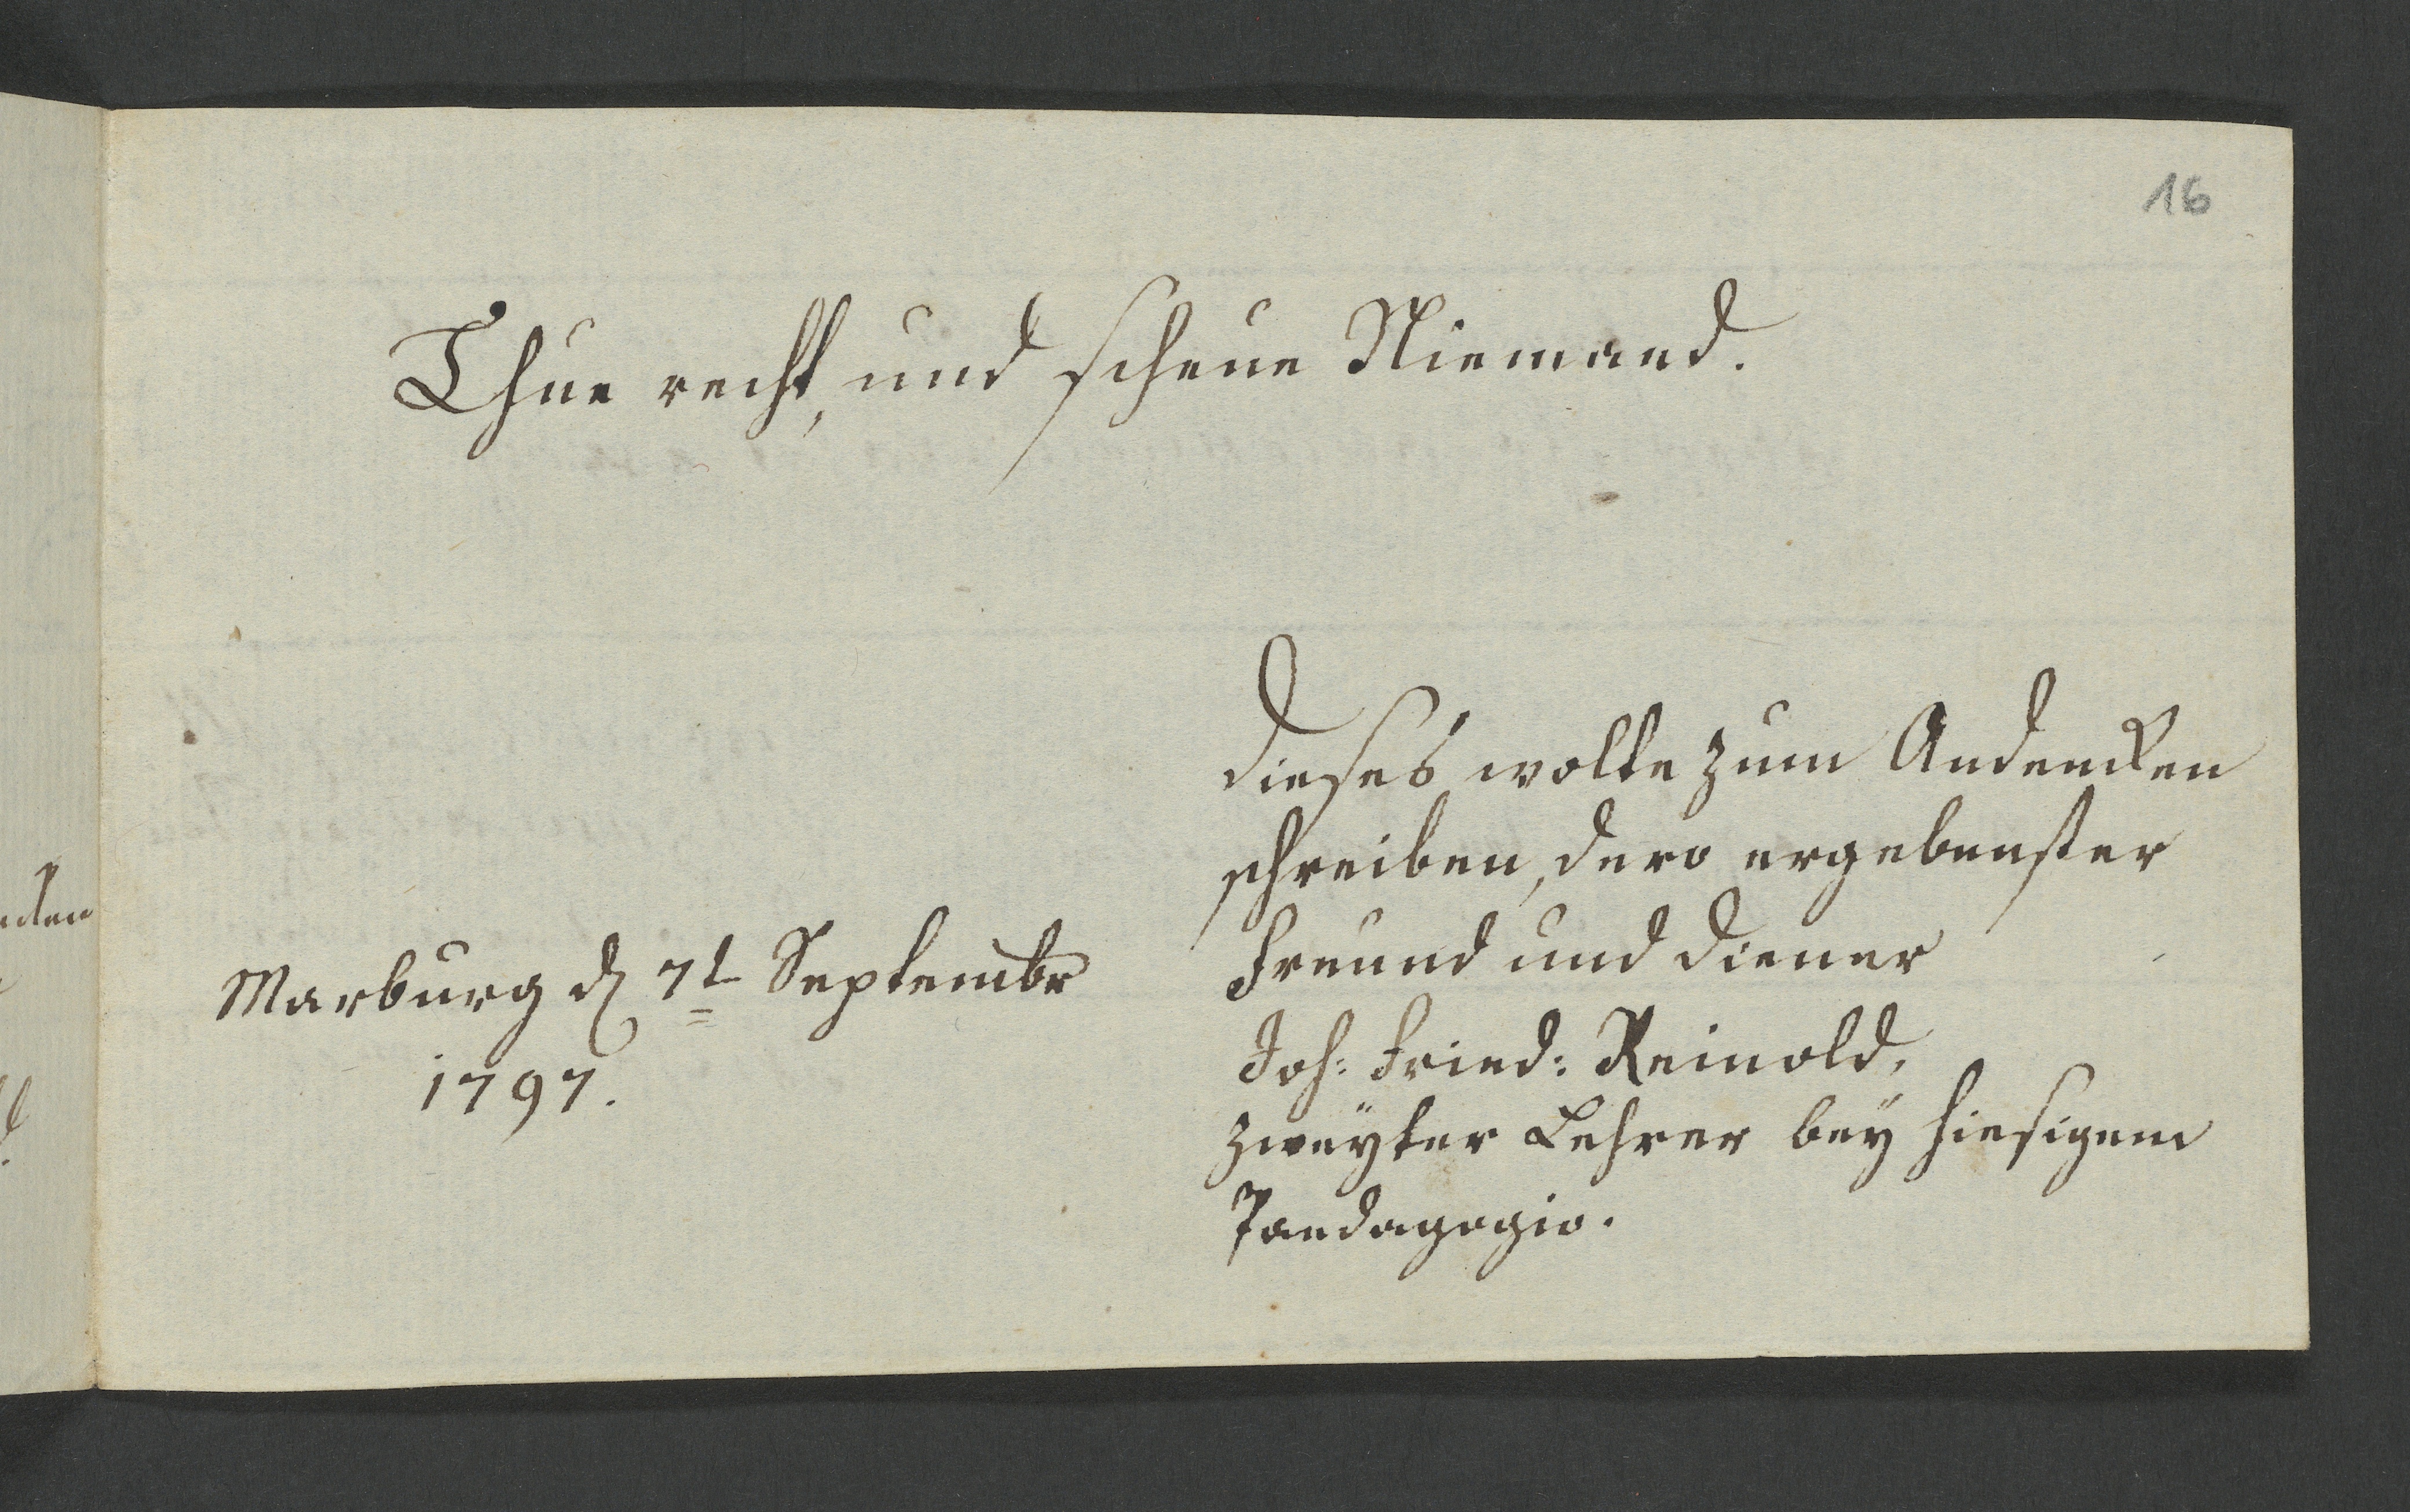 16
Thue recht, und scheue Niemand.
Dieses wolte zum Andencken
schreiben, dero ergebenster
Freund und Diener
Joh: Fried: Reinold,
zweyter Lehrer bey hiesigem
Paedagogio.
Marburg d 7t Septembr
1797.